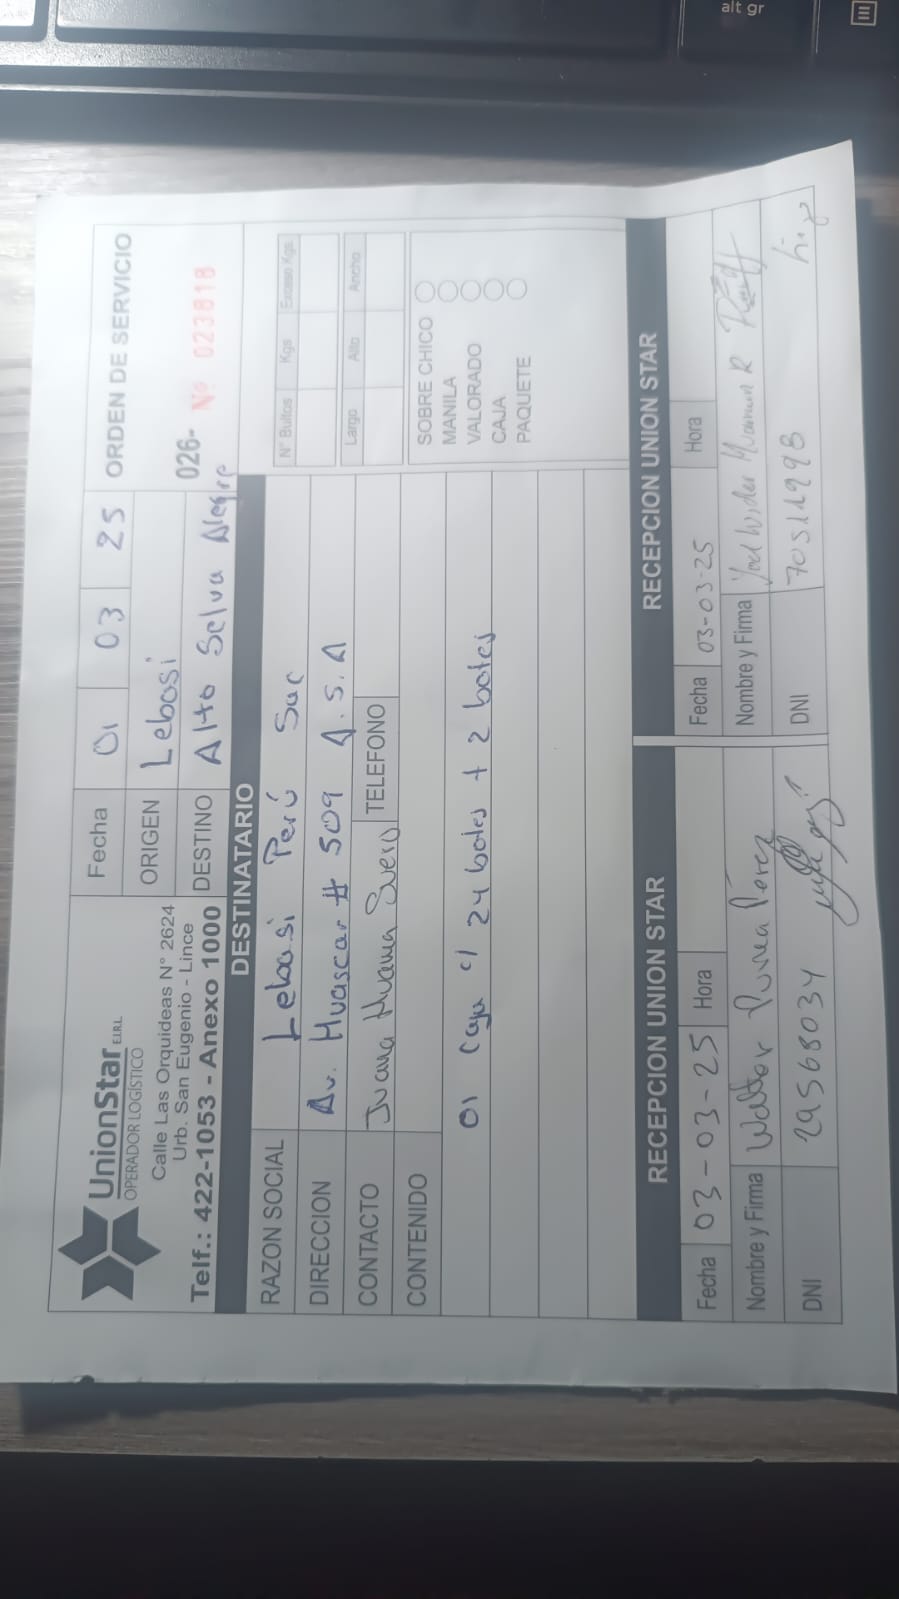 alt gr
UnionStar E.I.R.L
OPERADOR LOGÍSTICO
Calle Las Orquideas N° 2624
Urb. San Eugenio - Lince
Telf.: 422-1053 - Anexo 1000
Fecha 01 03 25
ORIGEN Lebosi
DESTINO Alto Selva Alegre
ORDEN DE SERVICIO
026- N° 023818
DESTINATARIO
RAZON SOCIAL Lebosi Perú Sac
DIRECCION Av. Huascar # 509 A.S.A
CONTACTO Juana Huama TELEFONO
CONTENIDO
01 Caja c/ 24 botes + 2 botes
N° Bultos Kgs Exceso Kgs
Largo Alto Ancho
SOBRE CHICO
MANILA
VALORADO
CAJA
PAQUETE
RECEPCION UNION STAR
Fecha 03-03-25 Hora
Nombre y Firma Walter Pérez
DNI 29568034
RECEPCION UNION STAR
Fecha 03-03-25 Hora
Nombre y Firma
DNI 70511998